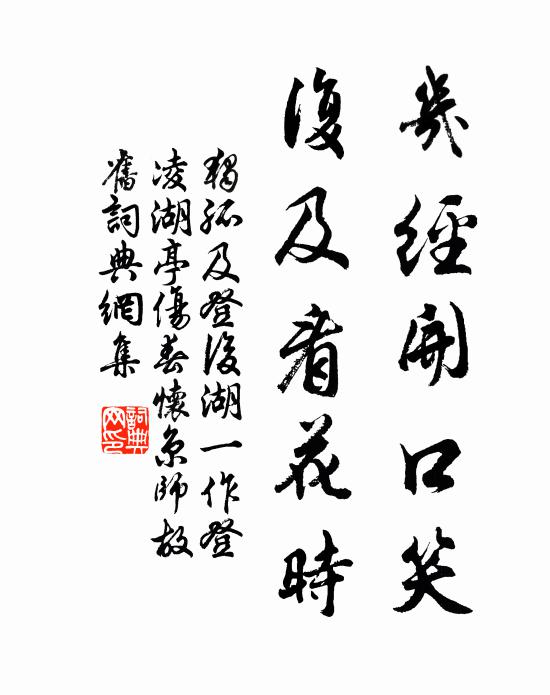 幾經開口笑
復及看花時
獨孤及登後湖一作登
凌湖亭傷春懷京師故
舊詞典網集
詞典网印